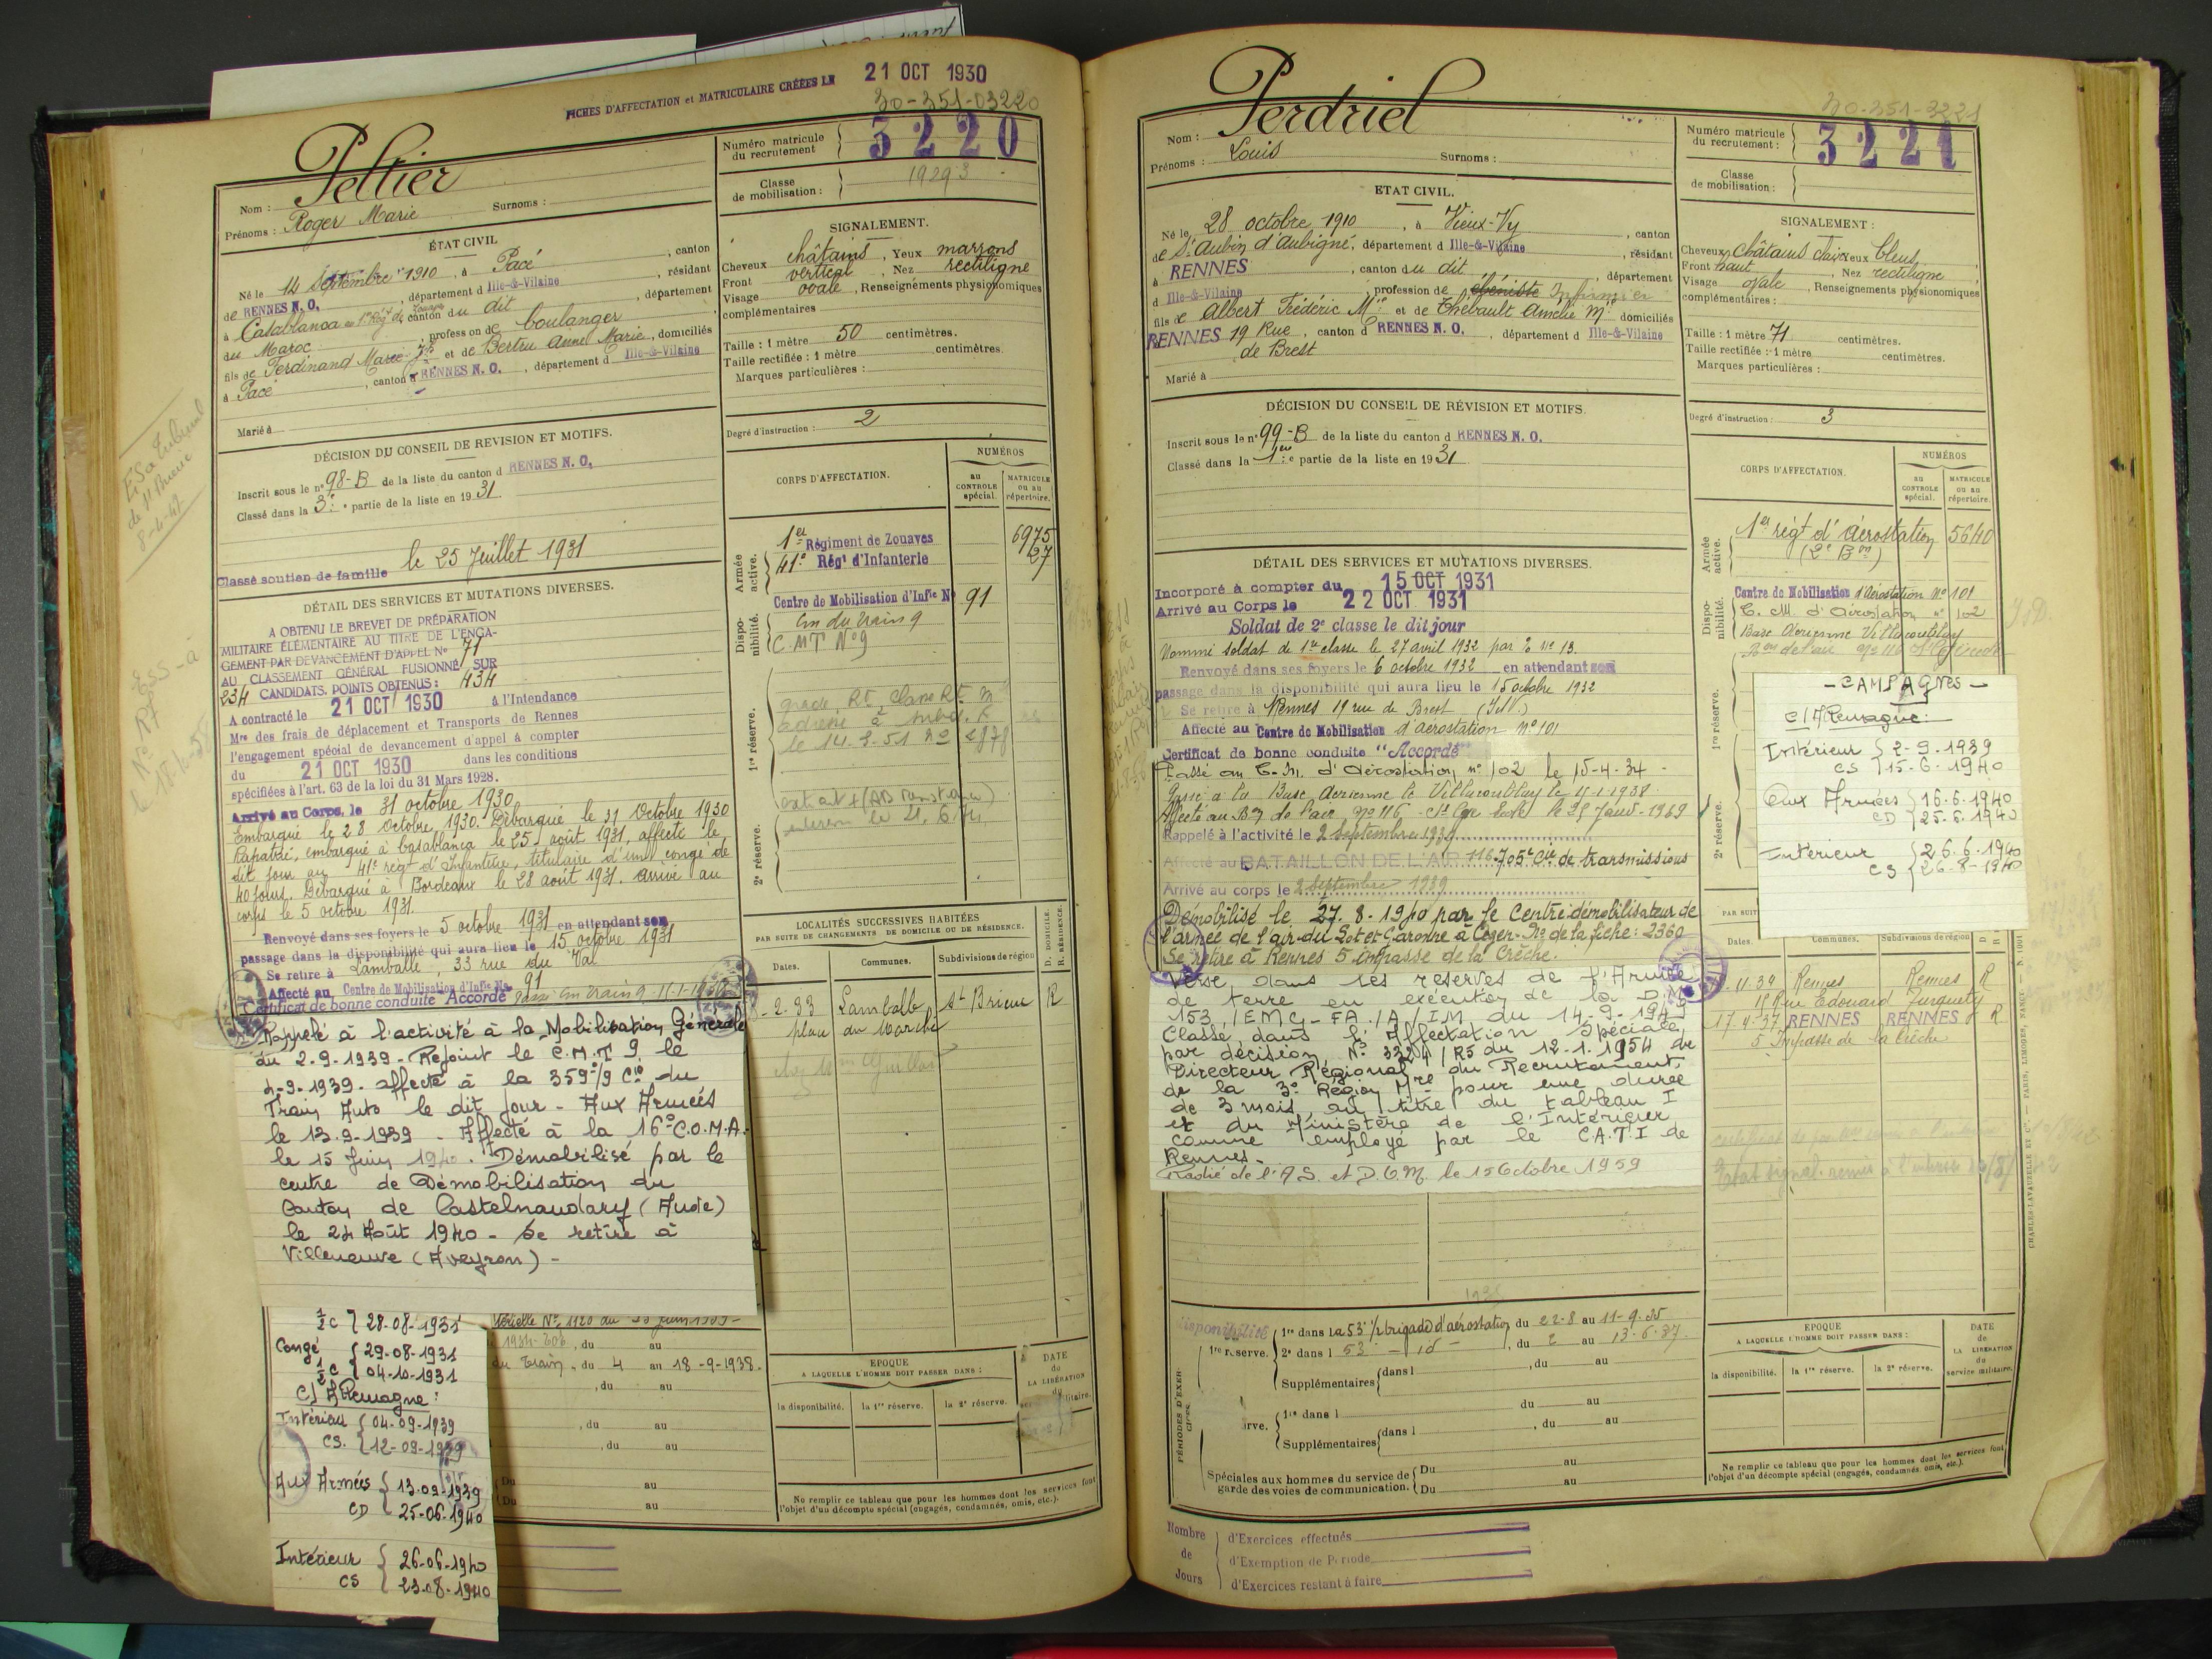 FICHES D'AFFECTATION et MATRICULAIRE CRÉÉES LE 21 OCT 1930
30-351-03220
Nom : Peltier
Prénoms : Roger Marie Surnoms :
Numéro matricule du recrutement 3220
Classe de mobilisation : 1929 3
ÉTAT CIVIL
Né le 14 Septembre 1910, à Pacé, canton
de RENNES N. O., département d Ille-&-Vilaine, résidant
à Casablanca au 1er Régt de Zouaves canton du dit, département
du Maroc, profession de boulanger
fils de Ferdinand Marie Jh et de Bertru Anne Marie, domiciliés
à Pacé, canton d RENNES N. O., département d Ille-&-Vilaine
Marié à
SIGNALEMENT.
Cheveux châtains, Yeux marrons
Front vertical, Nez rectiligne
Visage ovale, Renseignements physionomiques
complémentaires
Taille : 1 mètre 50 centimètres.
Taille rectifiée : 1 mètre centimètres.
Marques particulières :
Degré d'instruction : 2
DÉCISION DU CONSEIL DE RÉVISION ET MOTIFS.
Inscrit sous le n° 98-B de la liste du canton d RENNES N. O.
Classé dans la 3e partie de la liste en 1931
Classé soutien de famille le 25 Juillet 1931
DÉTAIL DES SERVICES ET MUTATIONS DIVERSES.
A OBTENU LE BREVET DE PRÉPARATION
MILITAIRE ÉLÉMENTAIRE AU TITRE DE L'ENGA-
GEMENT PAR DEVANCEMENT D'APPEL N° 71
AU CLASSEMENT GÉNÉRAL FUSIONNÉ SUR
234 CANDIDATS. POINTS OBTENUS : 434
A contracté le 21 OCT 1930 à l'Intendance
Mre des frais de déplacement et Transports de Rennes
l'engagement spécial de devancement d'appel à compter
du 21 OCT 1930 dans les conditions
spécifiées à l'art. 63 de la loi du 31 Mars 1928.
Arrivé au Corps, le 31 octobre 1930
Embarqué le 28 Octobre 1930. Débarqué le 31 Octobre 1930
Rapatrié, embarqué à Casablanca le 25 août 1931, affecté le
dit jour au 41e régt d'Infanterie, titulaire d'un congé de
40 jours. Débarqué à Bordeaux le 28 août 1931. Arrivé au
corps le 5 octobre 1931.
Renvoyé dans ses foyers le 5 octobre 1931 en attendant son
passage dans la disponibilité qui aura lieu le 15 octobre 1931
Se retire à Lamballe, 33 rue du Val
Affecté au Centre de Mobilisation d'Infie No 91
Certificat de bonne conduite "Accordé"
Rappelé à l'activité à la Mobilisation Générale
du 2-9-1939 - Rejoint le C.M.T 9 le
4-9-1939. affecté à la 359e/9 Cie du
Train Auto le dit jour - Aux Armées
le 13.9-1939 - Affecté à la 16e C.O.M.A.
le 15 Juin 1940. Démobilisé par le
centre de Démobilisation du
Canton de Castelnaudary (Aude)
le 24 Août 1940 - Se retire à
Villeneuve (Aveyron) -
½ C 28-08-1931
Congé 29-08-1931
½ C 04-10-1931
C/ Allemagne :
Intérieur 04-09-1939
CS. 12-09-1939
Aux Armées 13-09-1939
CD 25-06-1940
Intérieur 26-06-1940
CS 23-08-1940
du Train, du 4 au 18-9-1938.
, du au
, du au
, du au
Du au
Du au
CORPS D'AFFECTATION.
NUMÉROS
au CONTROLE spécial.
MATRICULE ou au répertoire.
Armée active.
1er Régiment de Zouaves 6975
41e Régt d'Infanterie 27
Disponibilité.
Centre de Mobilisation d'Infie N° 91
C.M.T N°9
1re réserve.
le 14.3.51
2e réserve.
LOCALITÉS SUCCESSIVES HABITÉES
PAR SUITE DE CHANGEMENTS DE DOMICILE OU DE RÉSIDENCE.
Dates. Communes. Subdivisions de région D. DOMICILE. R. RÉSIDENCE.
2-33 Lamballe St Brieuc R
place du Marché
EPOQUE
A LAQUELLE L'HOMME DOIT PASSER DANS :
la disponibilité. la 1re réserve. la 2e réserve.
DATE du LA LIBÉRATION du
Ne remplir ce tableau que pour les hommes dont les services font
l'objet d'un décompte spécial (engagés, condamnés, omis, etc.).
30-351-3221
Nom : Perdriel
Prénoms : Louis Surnoms :
Numéro matricule du recrutement : 3221
Classe de mobilisation :
ETAT CIVIL.
Né le 28 octobre 1910, à Vieux-Vy, canton
de St Aubin d'Aubigné, département d Ille-&-Vilaine, résidant
à RENNES, canton du dit, département
d Ille-&-Vilaine, profession de ébéniste Infirmier
fils de Albert Frédéric Mie et de Thébault Amélie Mie domiciliés
RENNES 19 Rue, canton d RENNES N. O., département d Ille-&-Vilaine
de Brest
Marié à
SIGNALEMENT :
Cheveux Châtains clair Yeux bleus
Front haut, Nez rectiligne
Visage ovale, Renseignements physionomiques
complémentaires :
Taille : 1 mètre 71 centimètres.
Taille rectifiée : 1 mètre centimètres.
Marques particulières :
Degré d'instruction : 3
DÉCISION DU CONSEIL DE RÉVISION ET MOTIFS.
Inscrit sous le n° 99-B de la liste du canton d RENNES N. O.
Classé dans la 1ère partie de la liste en 1931
DÉTAIL DES SERVICES ET MUTATIONS DIVERSES.
Incorporé à compter du 15 OCT 1931
Arrivé au Corps le 22 OCT 1931
Soldat de 2e classe le dit jour
Nommé soldat de 1re classe le 27 avril 1932 par O N° 13
Renvoyé dans ses foyers le 6 octobre 1932 en attendant son
passage dans la disponibilité qui aura lieu le 15 octobre 1932
Se retire à Rennes 19 rue de Brest
Affecté au Centre de Mobilisation d'aérostation n° 101
Certificat de bonne conduite "Accordé"
Passé au C.M. d'Aérostation n° 102 le 15-4-34
Passé à la Base Aérienne de Villacoublay le 11-1-1938
Rappelé à l'activité le 2 Septembre 1939
Affecté au BATAILLON DE L'AIR 116 705e Cie de transmissions
Arrivé au corps le 2 Septembre 1939
Démobilisé le 27. 8. 1940 par le Centre démobilisateur de
l'armée de l'air du Lot et Garonne à Cager - No de la fiche : 2360
Se retire à Rennes 5 impasse de la Crèche.
Versé dans les réserves de l'Armée
de terre en exécution de la D.M
153 / EMG - FA / A / IM du 14-9-1949
Classé dans l'Affectation Spéciale,
par décision N° 3324 / R5 du 12-1-1954 du
Directeur Régional du Recrutement
de la 3e Région Mre pour une durée
de 3 mois au titre du tableau I
et du Ministère de l'Intérieur
comme employé par le C.A.T.I de
Rennes -
Radié de l'A.S. et D.O.M. le 15 Octobre 1959
CORPS D'AFFECTATION.
NUMÉROS
au CONTROLE spécial.
MATRICULE ou au répertoire.
Armée active.
1er régt d'Aérostation 5640
(2e Bon)
Disponibilité.
Centre de Mobilisation d'Aérostation N° 101
C. M. d'Aérostation n° 102
Base Aérienne Villacoublay
1re réserve.
2e réserve.
- CAMPAGNES -
C/ Allemagne :
Intérieur 2-9-1939
CS 15-6-1940
Aux Armées 16-6-1940
CD 25-6-1940
Intérieur 26-6-1940
CS 26-8-1940
PAR SUIT
Dates. Communes. Subdivisions de région D R
11.39 Rennes Rennes R
18 Rue Edouard Turquety
17-4-37 RENNES RENNES R
5 Impasse de la Crèche
PÉRIODES D'EXERCICES
disponibilité 1re dans la 53e 1/2 brigade d'aérostation du 22-8 au 11-9-35
1re réserve. 2e dans l 53 - id - , du 2 au 13-6-37
Supplémentaires dans l , du au
1re dans l du au
Supplémentaires dans l , du au
Spéciales aux hommes du service de garde des voies de communication. Du au
Du au
EPOQUE
A LAQUELLE L'HOMME DOIT PASSER DANS :
la disponibilité. la 1re réserve. la 2e réserve.
DATE de LA LIBÉRATION du service militaire.
Ne remplir ce tableau que pour les hommes dont les services font
l'objet d'un décompte spécial (engagés, condamnés, omis, etc.).
Nombre de Jours
d'Exercices effectués
d'Exemption de Période
d'Exercices restant à faire
CHARLES-LAVAUZELLE ET Cie. — PARIS, LIMOGES, NANCY.